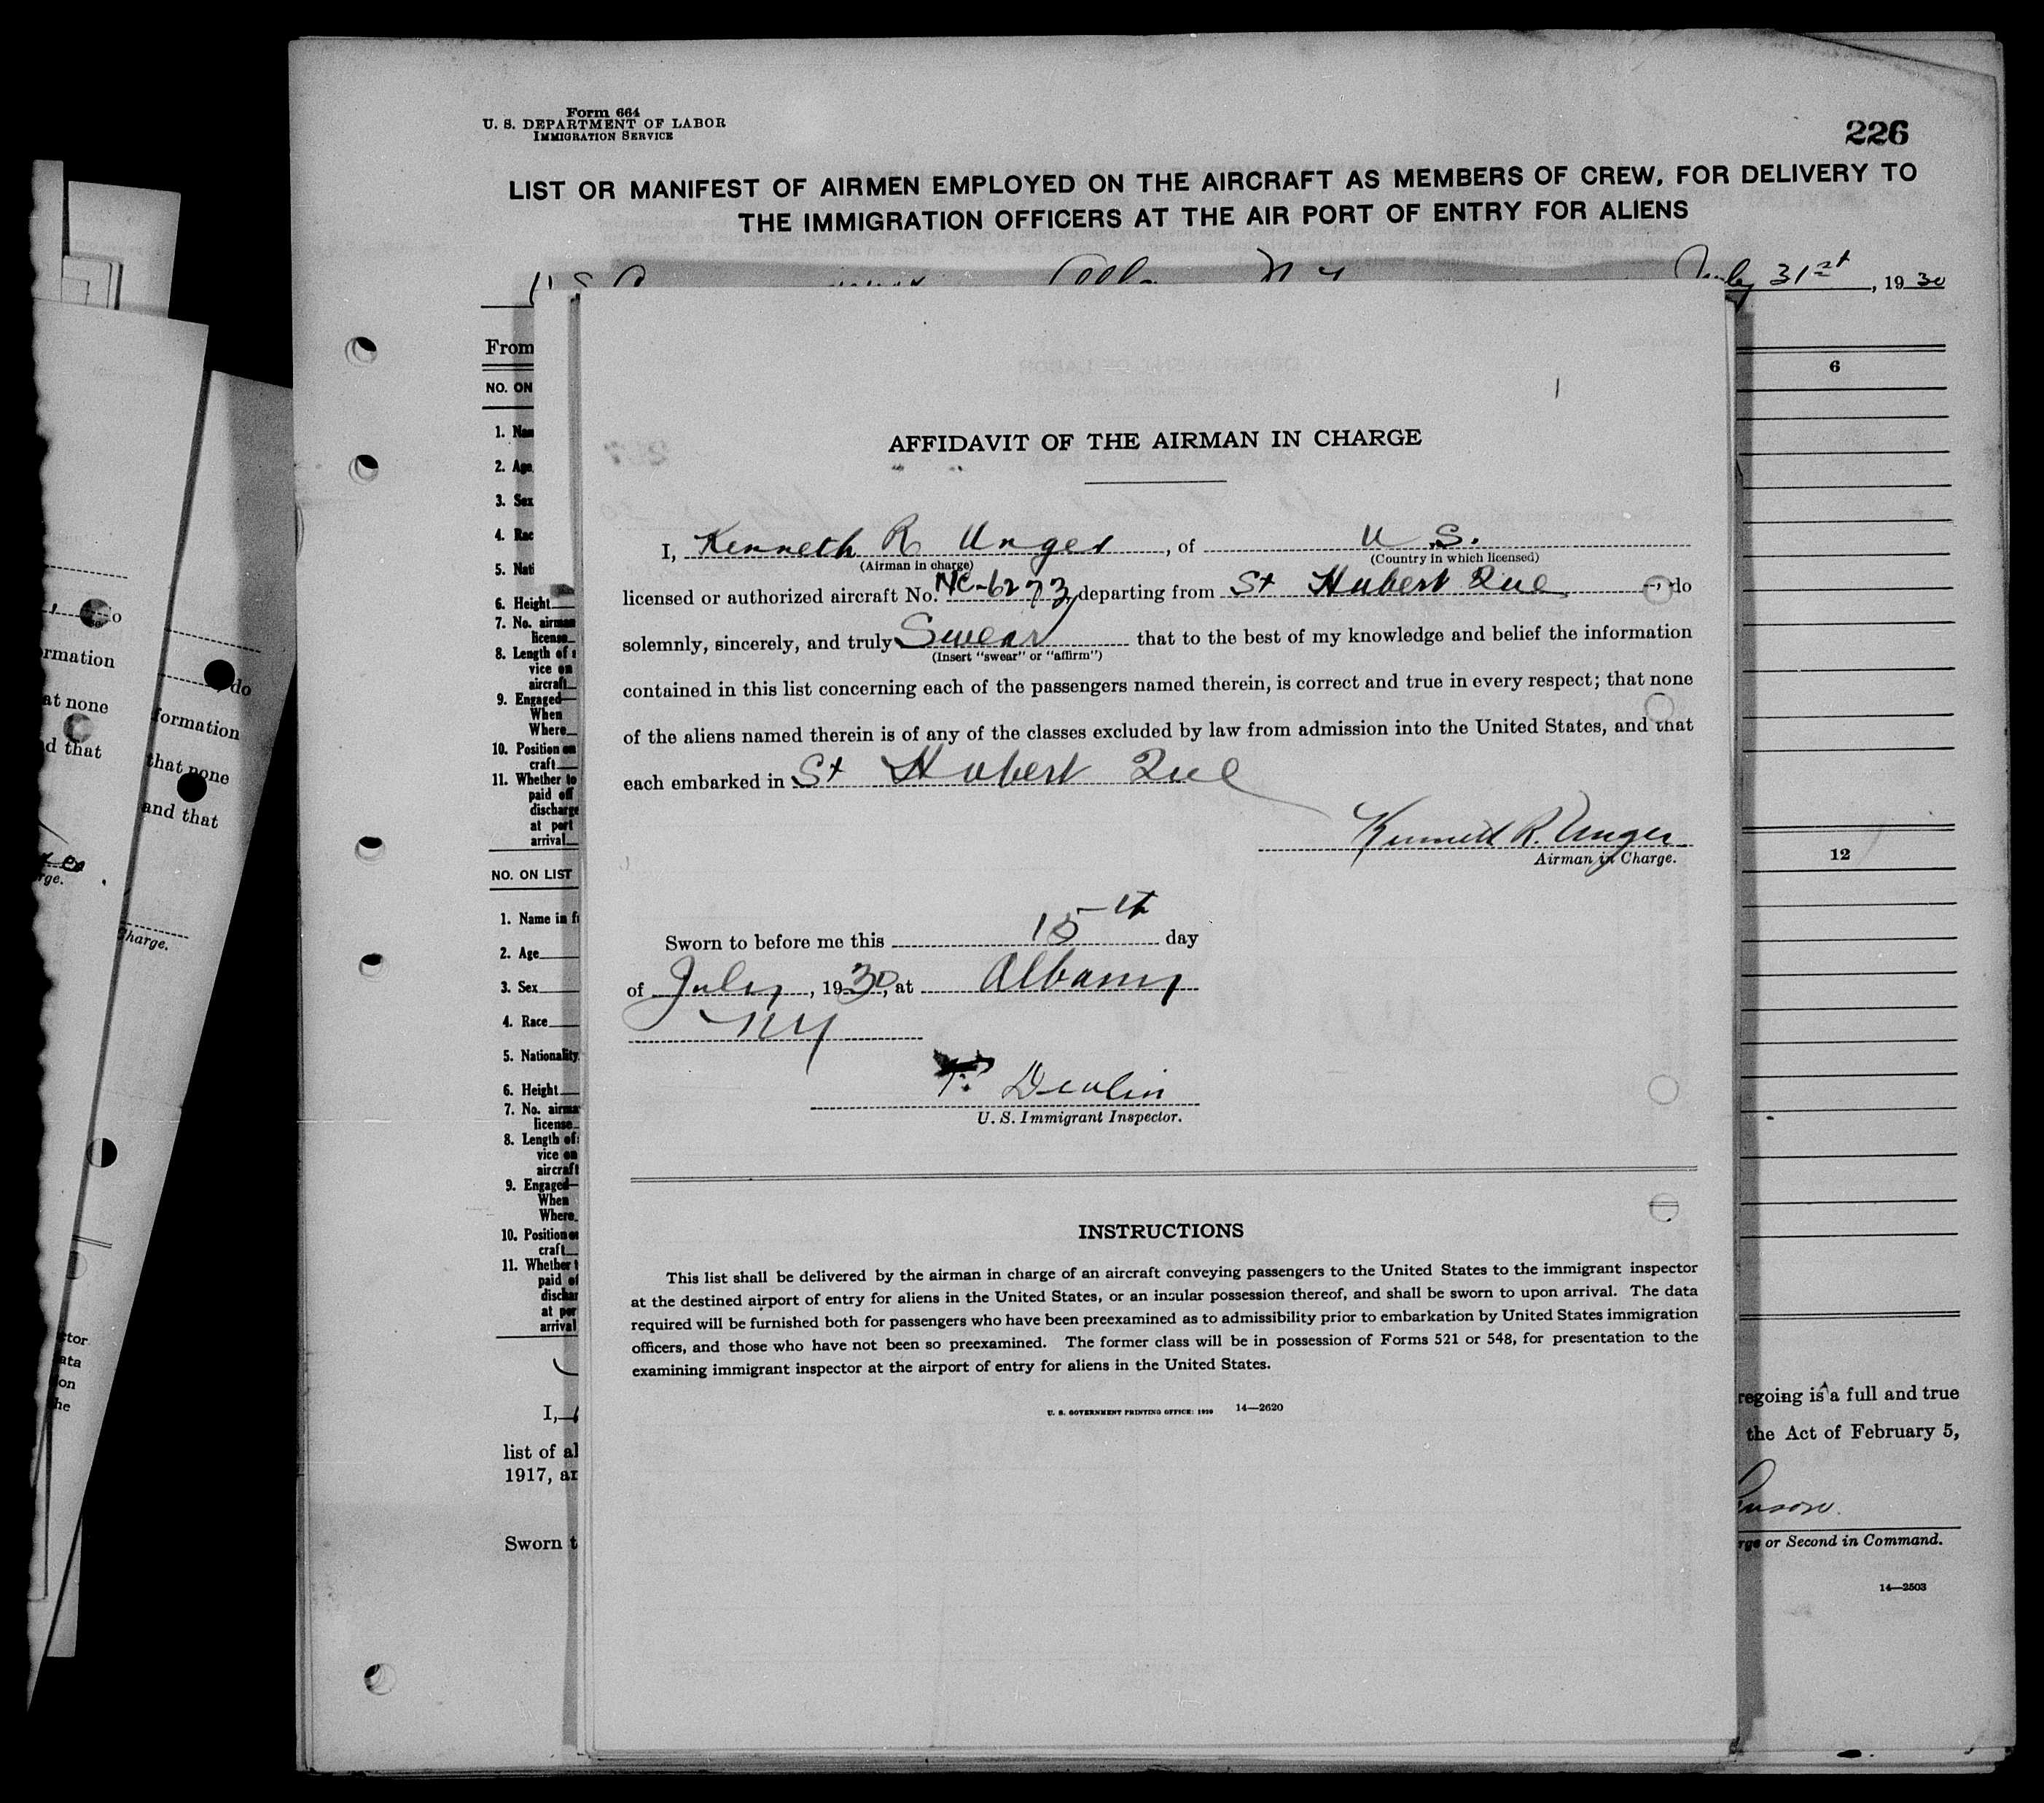 Form 664
U. S. DEPARTMENT OF LABOR
IMMIGRATION SERVICE
226
LIST OR MANIFEST OF AIRMEN EMPLOYED ON THE AIRCRAFT AS MEMBERS OF CREW, FOR DELIVERY TO
THE IMMIGRATION OFFICERS AT THE AIR PORT OF ENTRY FOR ALIENS
July 31st, 1930
From
NO. ON
6
1. Nam
2. Age
3. Sex
4. Rac
5. Nati
6. Height
7. No. airman
license
8. Length of
vice on
aircraft
9. Engaged—
When
Where
10. Position on
craft
11. Whether to
paid off
discharge
at port
arrival
NO. ON LIST
12
1. Name in f
2. Age
3. Sex
4. Race
5. Nationality
6. Height
7. No. airma
license
8. Length of
vice on
aircraft
9. Engaged—
When
Where
10. Position o
craft
11. Whether t
paid of
dischar
at por
arrival
I,
list of al
1917, an
Sworn t
regoing is a full and true
the Act of February 5,
rge or Second in Command.
14—2503
AFFIDAVIT OF THE AIRMAN IN CHARGE
I, Kenneth R Unger, of U.S.
(Airman in charge) (Country in which licensed)
licensed or authorized aircraft No. NC-6273, departing from St Hubert Que, do
solemnly, sincerely, and truly Swear that to the best of my knowledge and belief the information
(Insert "swear" or "affirm")
contained in this list concerning each of the passengers named therein, is correct and true in every respect; that none
of the aliens named therein is of any of the classes excluded by law from admission into the United States, and that
each embarked in St Hubert Que
Kenneth R. Unger
Airman in Charge.
Sworn to before me this 15th day
of July, 1930, at Albany
NY
Devlin
U. S. Immigrant Inspector.
INSTRUCTIONS
This list shall be delivered by the airman in charge of an aircraft conveying passengers to the United States to the immigrant inspector
at the destined airport of entry for aliens in the United States, or an insular possession thereof, and shall be sworn to upon arrival. The data
required will be furnished both for passengers who have been preexamined as to admissibility prior to embarkation by United States immigration
officers, and those who have not been so preexamined. The former class will be in possession of Forms 521 or 548, for presentation to the
examining immigrant inspector at the airport of entry for aliens in the United States.
U. S. GOVERNMENT PRINTING OFFICE: 1929 14—2620
ormation
at none
d that
rge.
do
formation
that none
and that
Charge.
ctor
ata
on
he